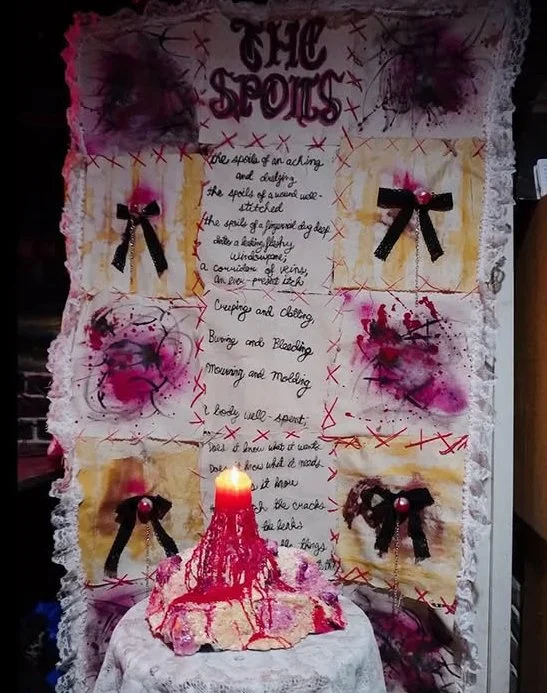 THE
SPOILS
the spoils of an aching
and dredging
the spoils of a wound well-
stitched
the spoils of a fingernail dug deep
into a healing, fleshy
windowpane;
a corridor of veins,
an ever-present itch
Creeping and Clotting,
Buring and Bleeding
Mourning and Molding
a body well-spent;
Does it know what it wants
Does it know what it needs
it know
the cracks
the leaks
the things